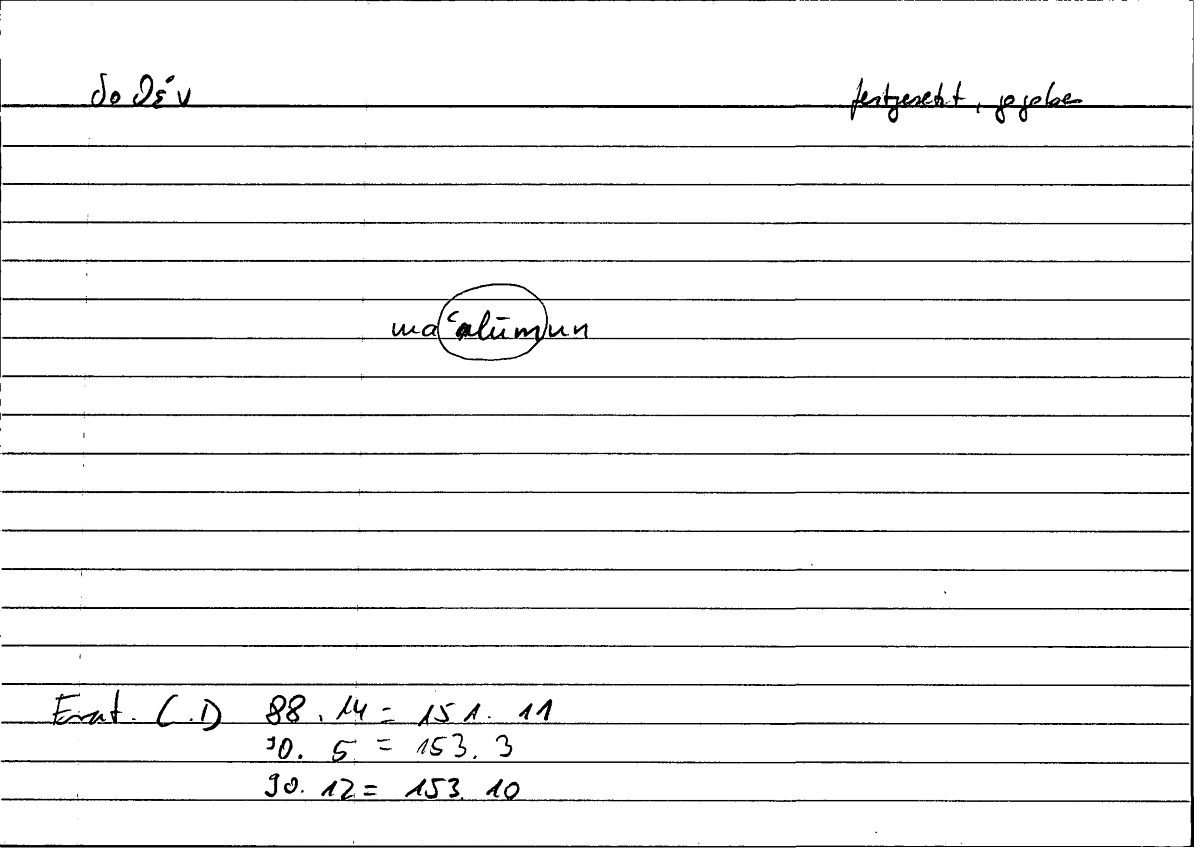 δοθέν festgesetzt, gegeben
maʿlūmun
Erat. C.D 88.14 = 151.11
90.5 = 153.3
90.12 = 153.10